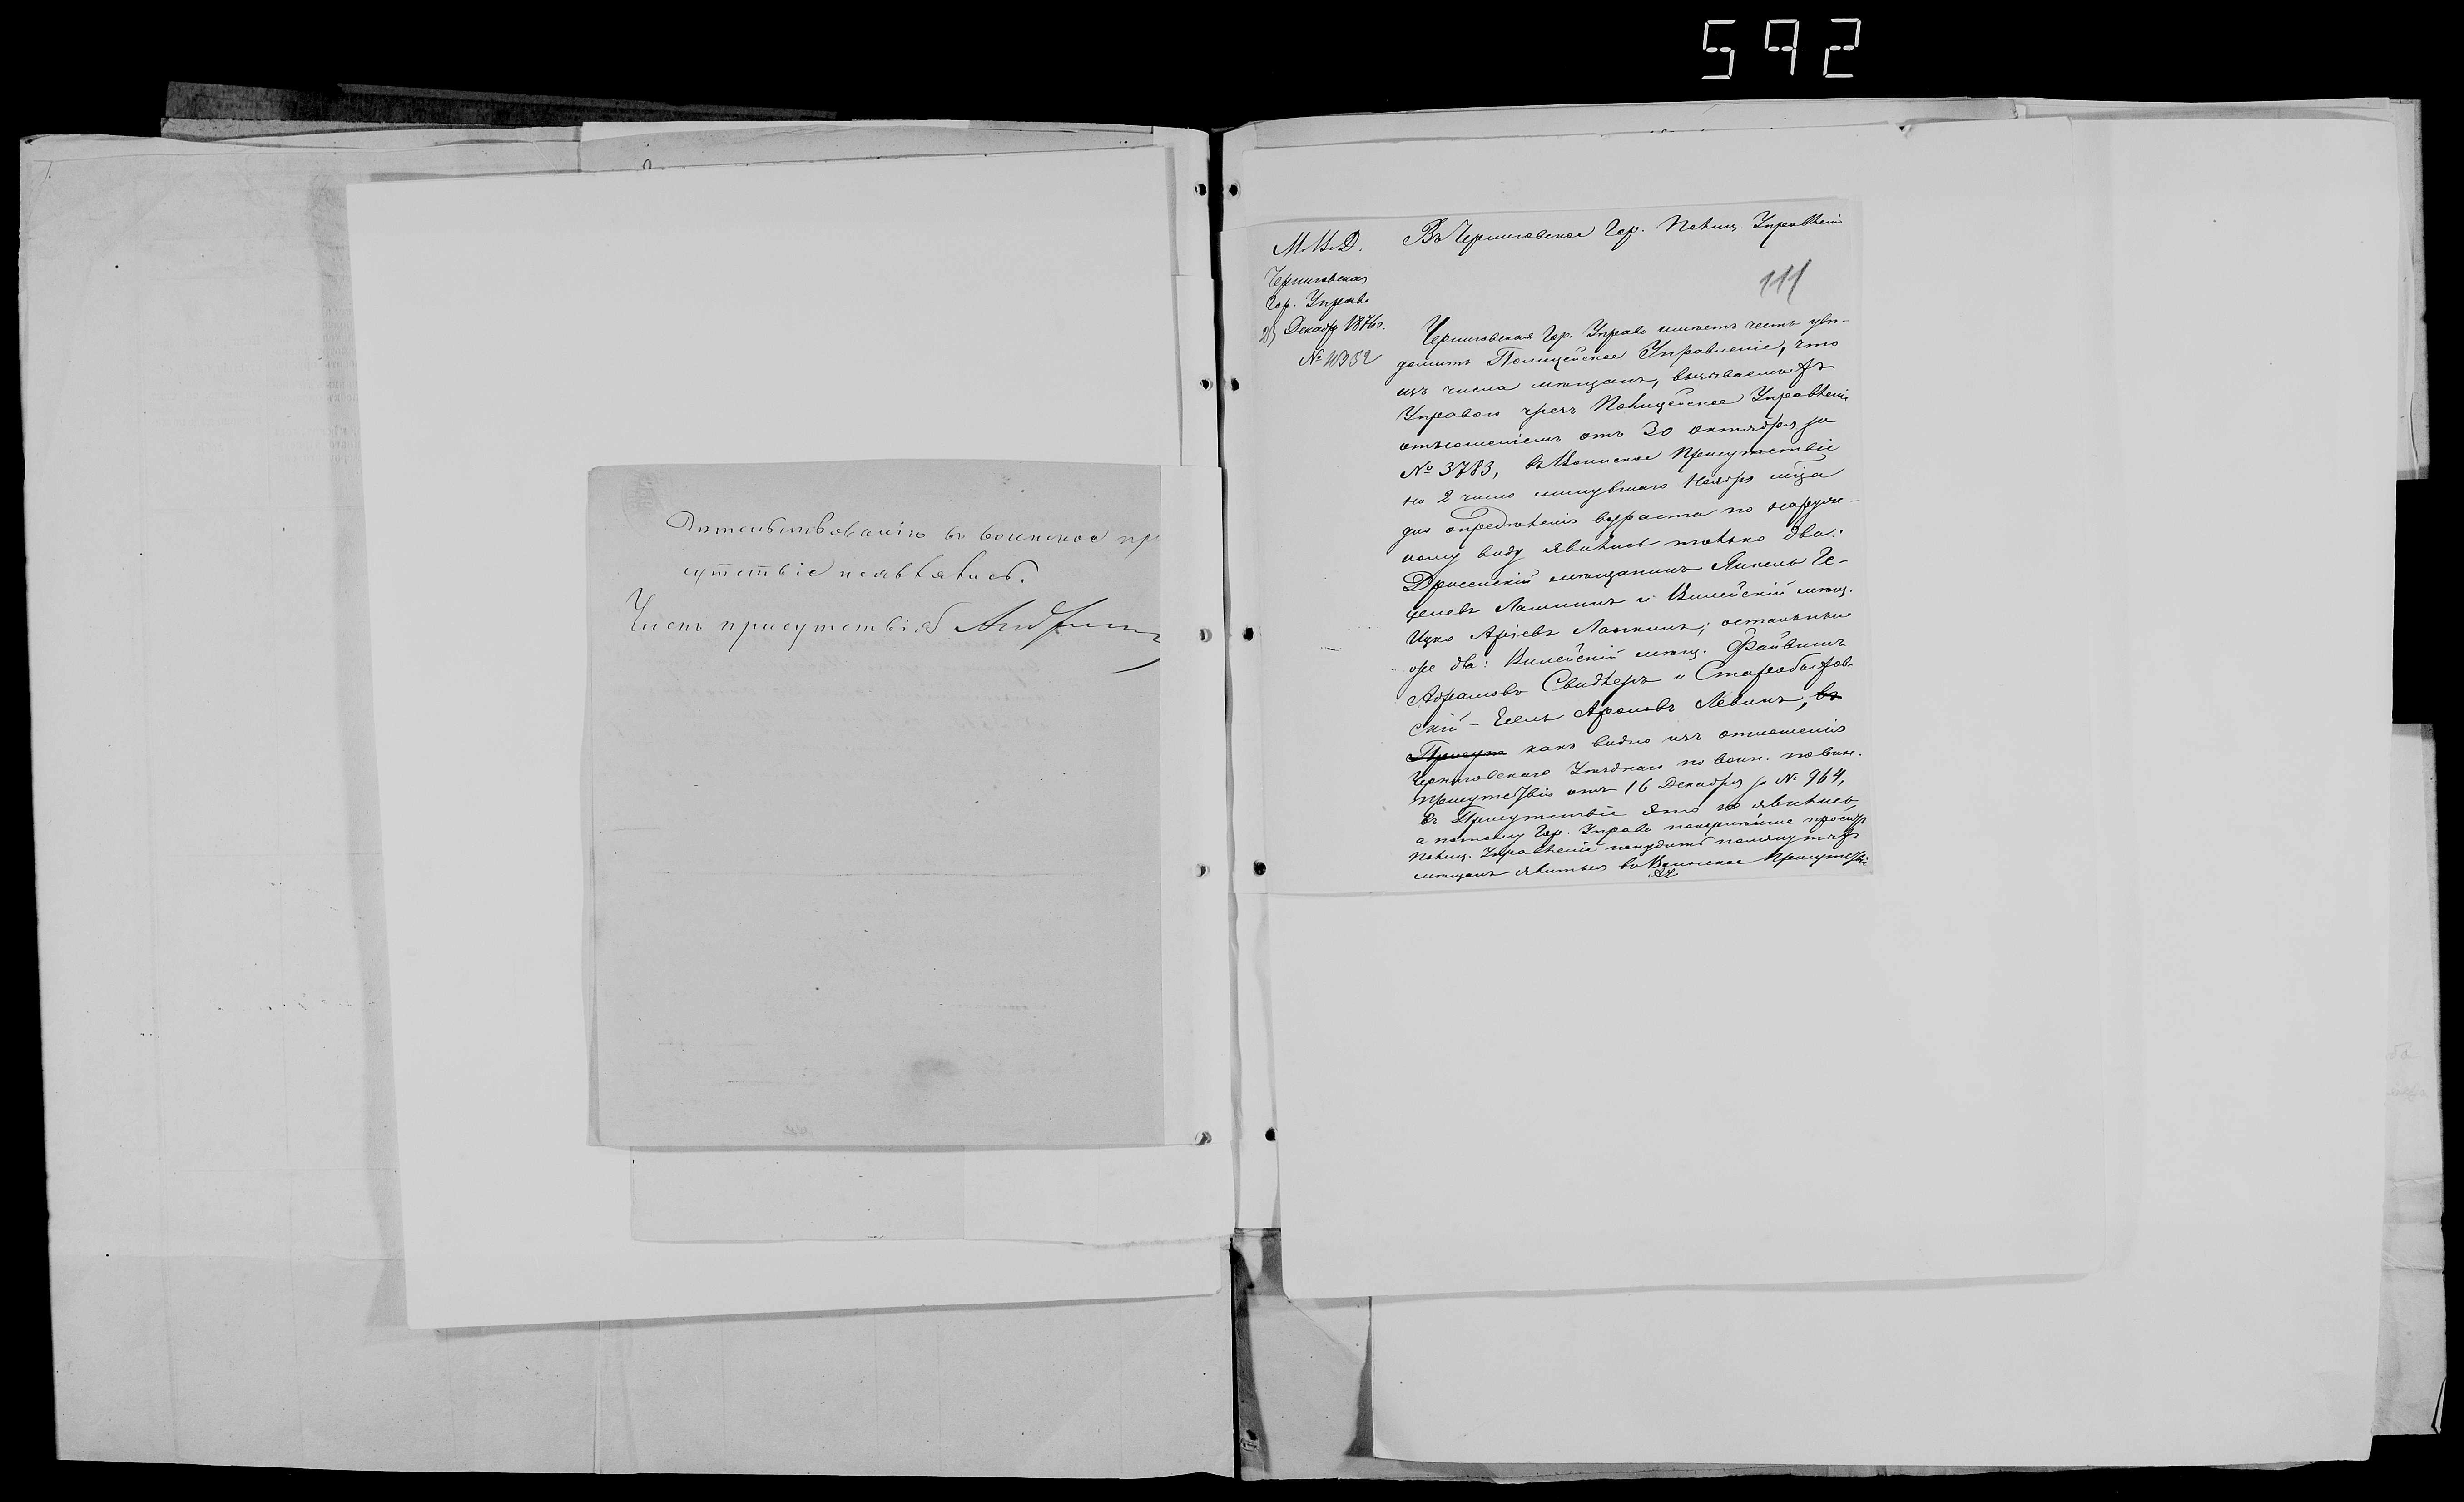 592
свидѣтельствованію въ воинское при
сутствіе неявлялись.
Членъ присутствія
М.В.Д.
Черниговская
Гор. Управа
Декабр. 1876 г.
№
Въ Черниговское Гор. Полиц. Управленіе
111
Черниговская Гор. Управа имѣетъ честь увѣ-
домить Полицейское Управленіе, что
изъ числа мѣщанъ, вызываемыхъ
Управою чрезъ Полицейское Управленіе
отношеніемъ отъ 30 октября за
№ 3783, въ Воинское Присутствіе
на 2 число минувшаго Ноября мѣсяца
для опредѣленія возраста по наруж-
ному виду явились только два:
Дриссенскій мѣщанинъ Янкель Ге-
целевъ Лашкинъ и Вилейскій мѣщ.
Ицко Аріевъ Лашкинъ; остальные
же два: Вилейскій мѣщ. Файвишъ
Абрамовъ Свидлеръ и Старобыхов-
скій - Есель Ароновъ Левинъ, въ
Присут какъ видно изъ отношенія
Черниговскаго Уѣзднаго по воин. повин.
присутствія отъ 16 Декабря за № 964,
въ Присутствіе это не явились,
а потому Гор. Управа покорнѣйше проситъ
Полиц. Управленіе понудить помянутыхъ
мѣщанъ явиться въ Воинское Присутствіе